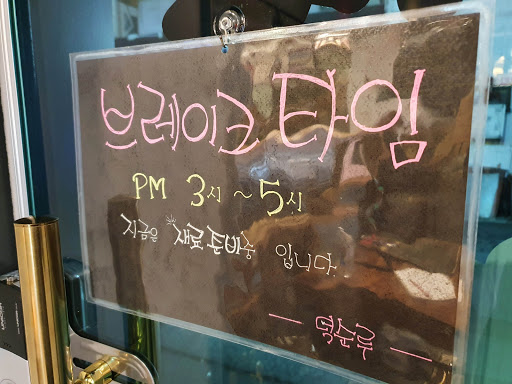 브레이크 타임
PM 3시 ~ 5시
지금은 재료준비중 입니다.
— 덕순루 —